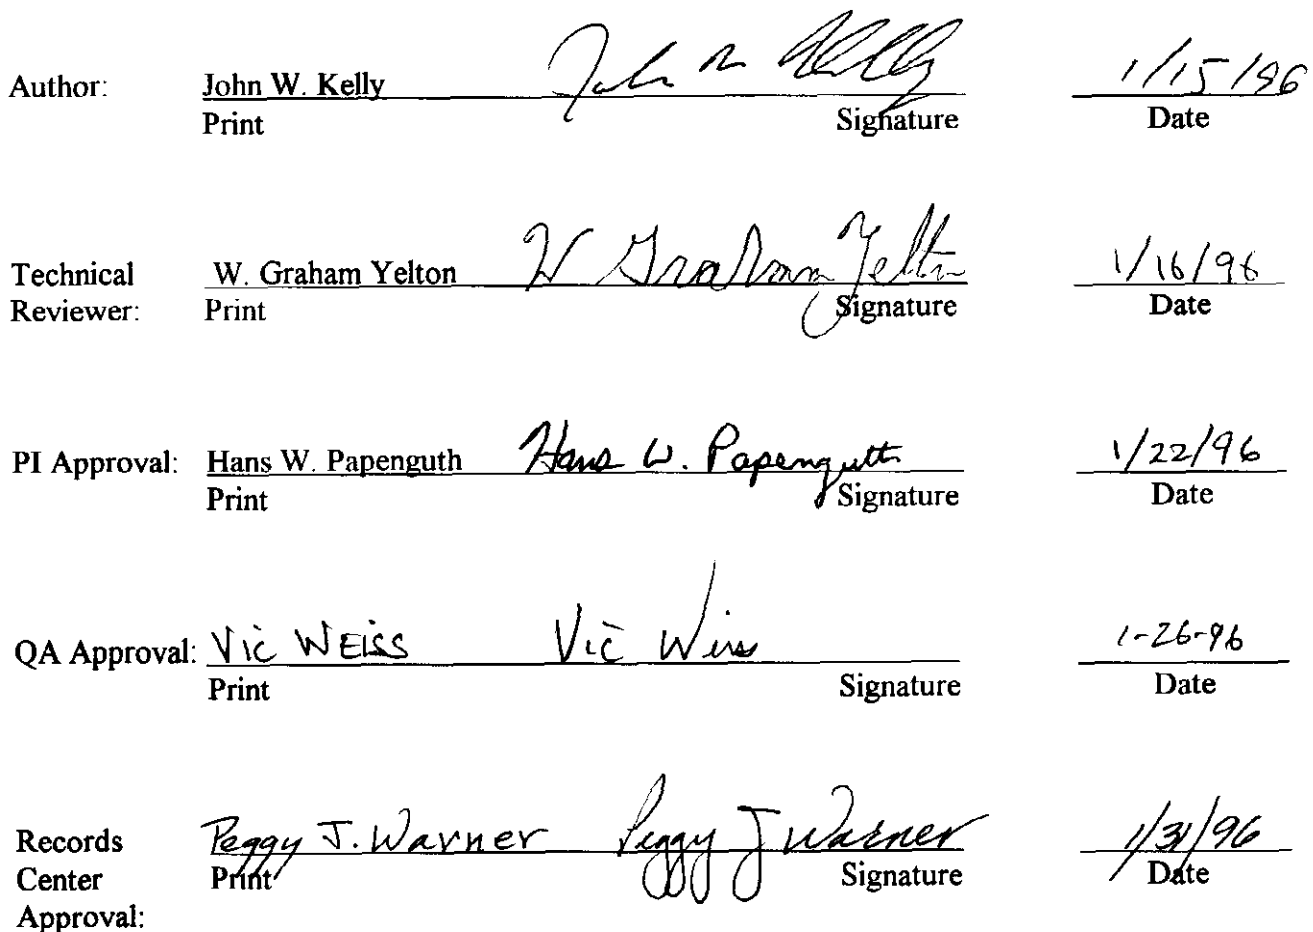 Author: John W. Kelly John W Kelly 1/15/96
Print Signature Date
Technical W. Graham Yelton W Graham Yelton 1/16/96
Reviewer: Print Signature Date
PI Approval: Hans W. Papenguth Hans W. Papenguth 1/22/96
Print Signature Date
QA Approval: Vic WEISS Vic Weiss 1-26-96
Print Signature Date
Records Peggy J. Warner Peggy J Warner 1/31/96
Center Print Signature Date
Approval: